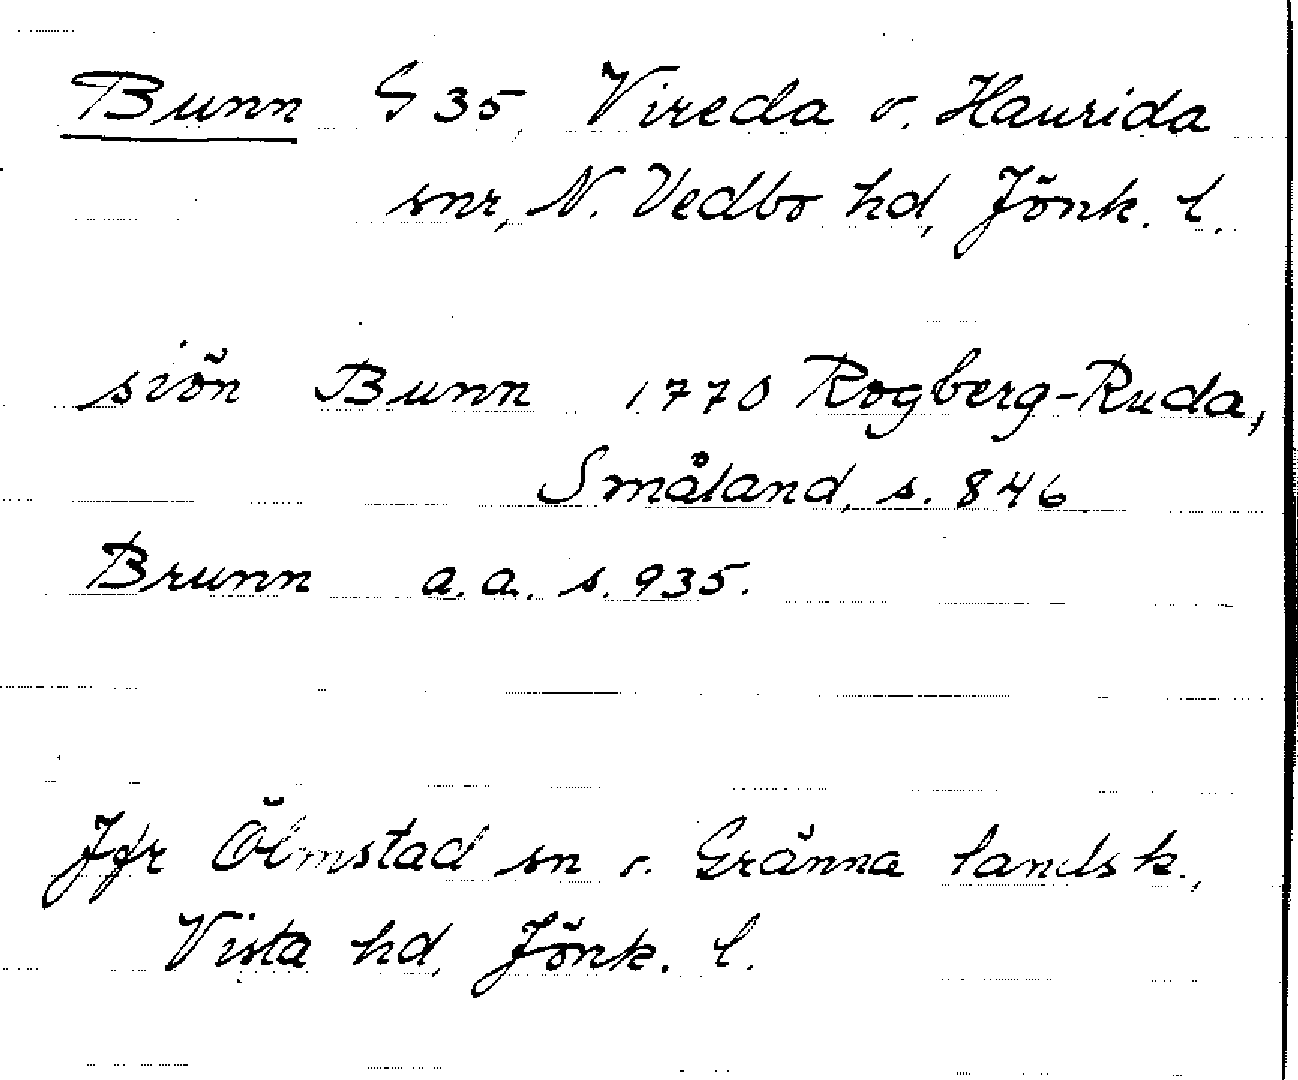 Bunn G 35 Vireda o. Haurida
snr, N. Vedbo hd, Jönk. l.
siön Bunn 1770 Rogberg-Ruda,
Småland, s. 846
Brunn a.a. s. 935.
Jfr Ölmstad sn o. Gränna landsk.,
Vista hd, Jönk. l.